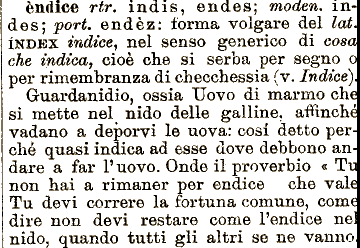 èndice rtr. indis, endes; moden. in-
des; port. endèz: forma volgare del lat.
ÍNDEX indice, nel senso generico di cosa
che indica, cioè che si serba per segno o
per rimembranza di checchessia (v. Indice).
Guardanidio, ossia Uovo di marmo che
si mette nel nido delle galline, affinché
vadano a deporvi le uova: cosí detto per-
ché quasi indica ad esse dove debbono an-
dare a far l'uovo. Onde il proverbio « Tu
non hai a rimaner per endice che vale
Tu devi correre la fortuna comune, come
dire non devi restare come l'endice nel
nido, quando tutti gli altri se ne vanno